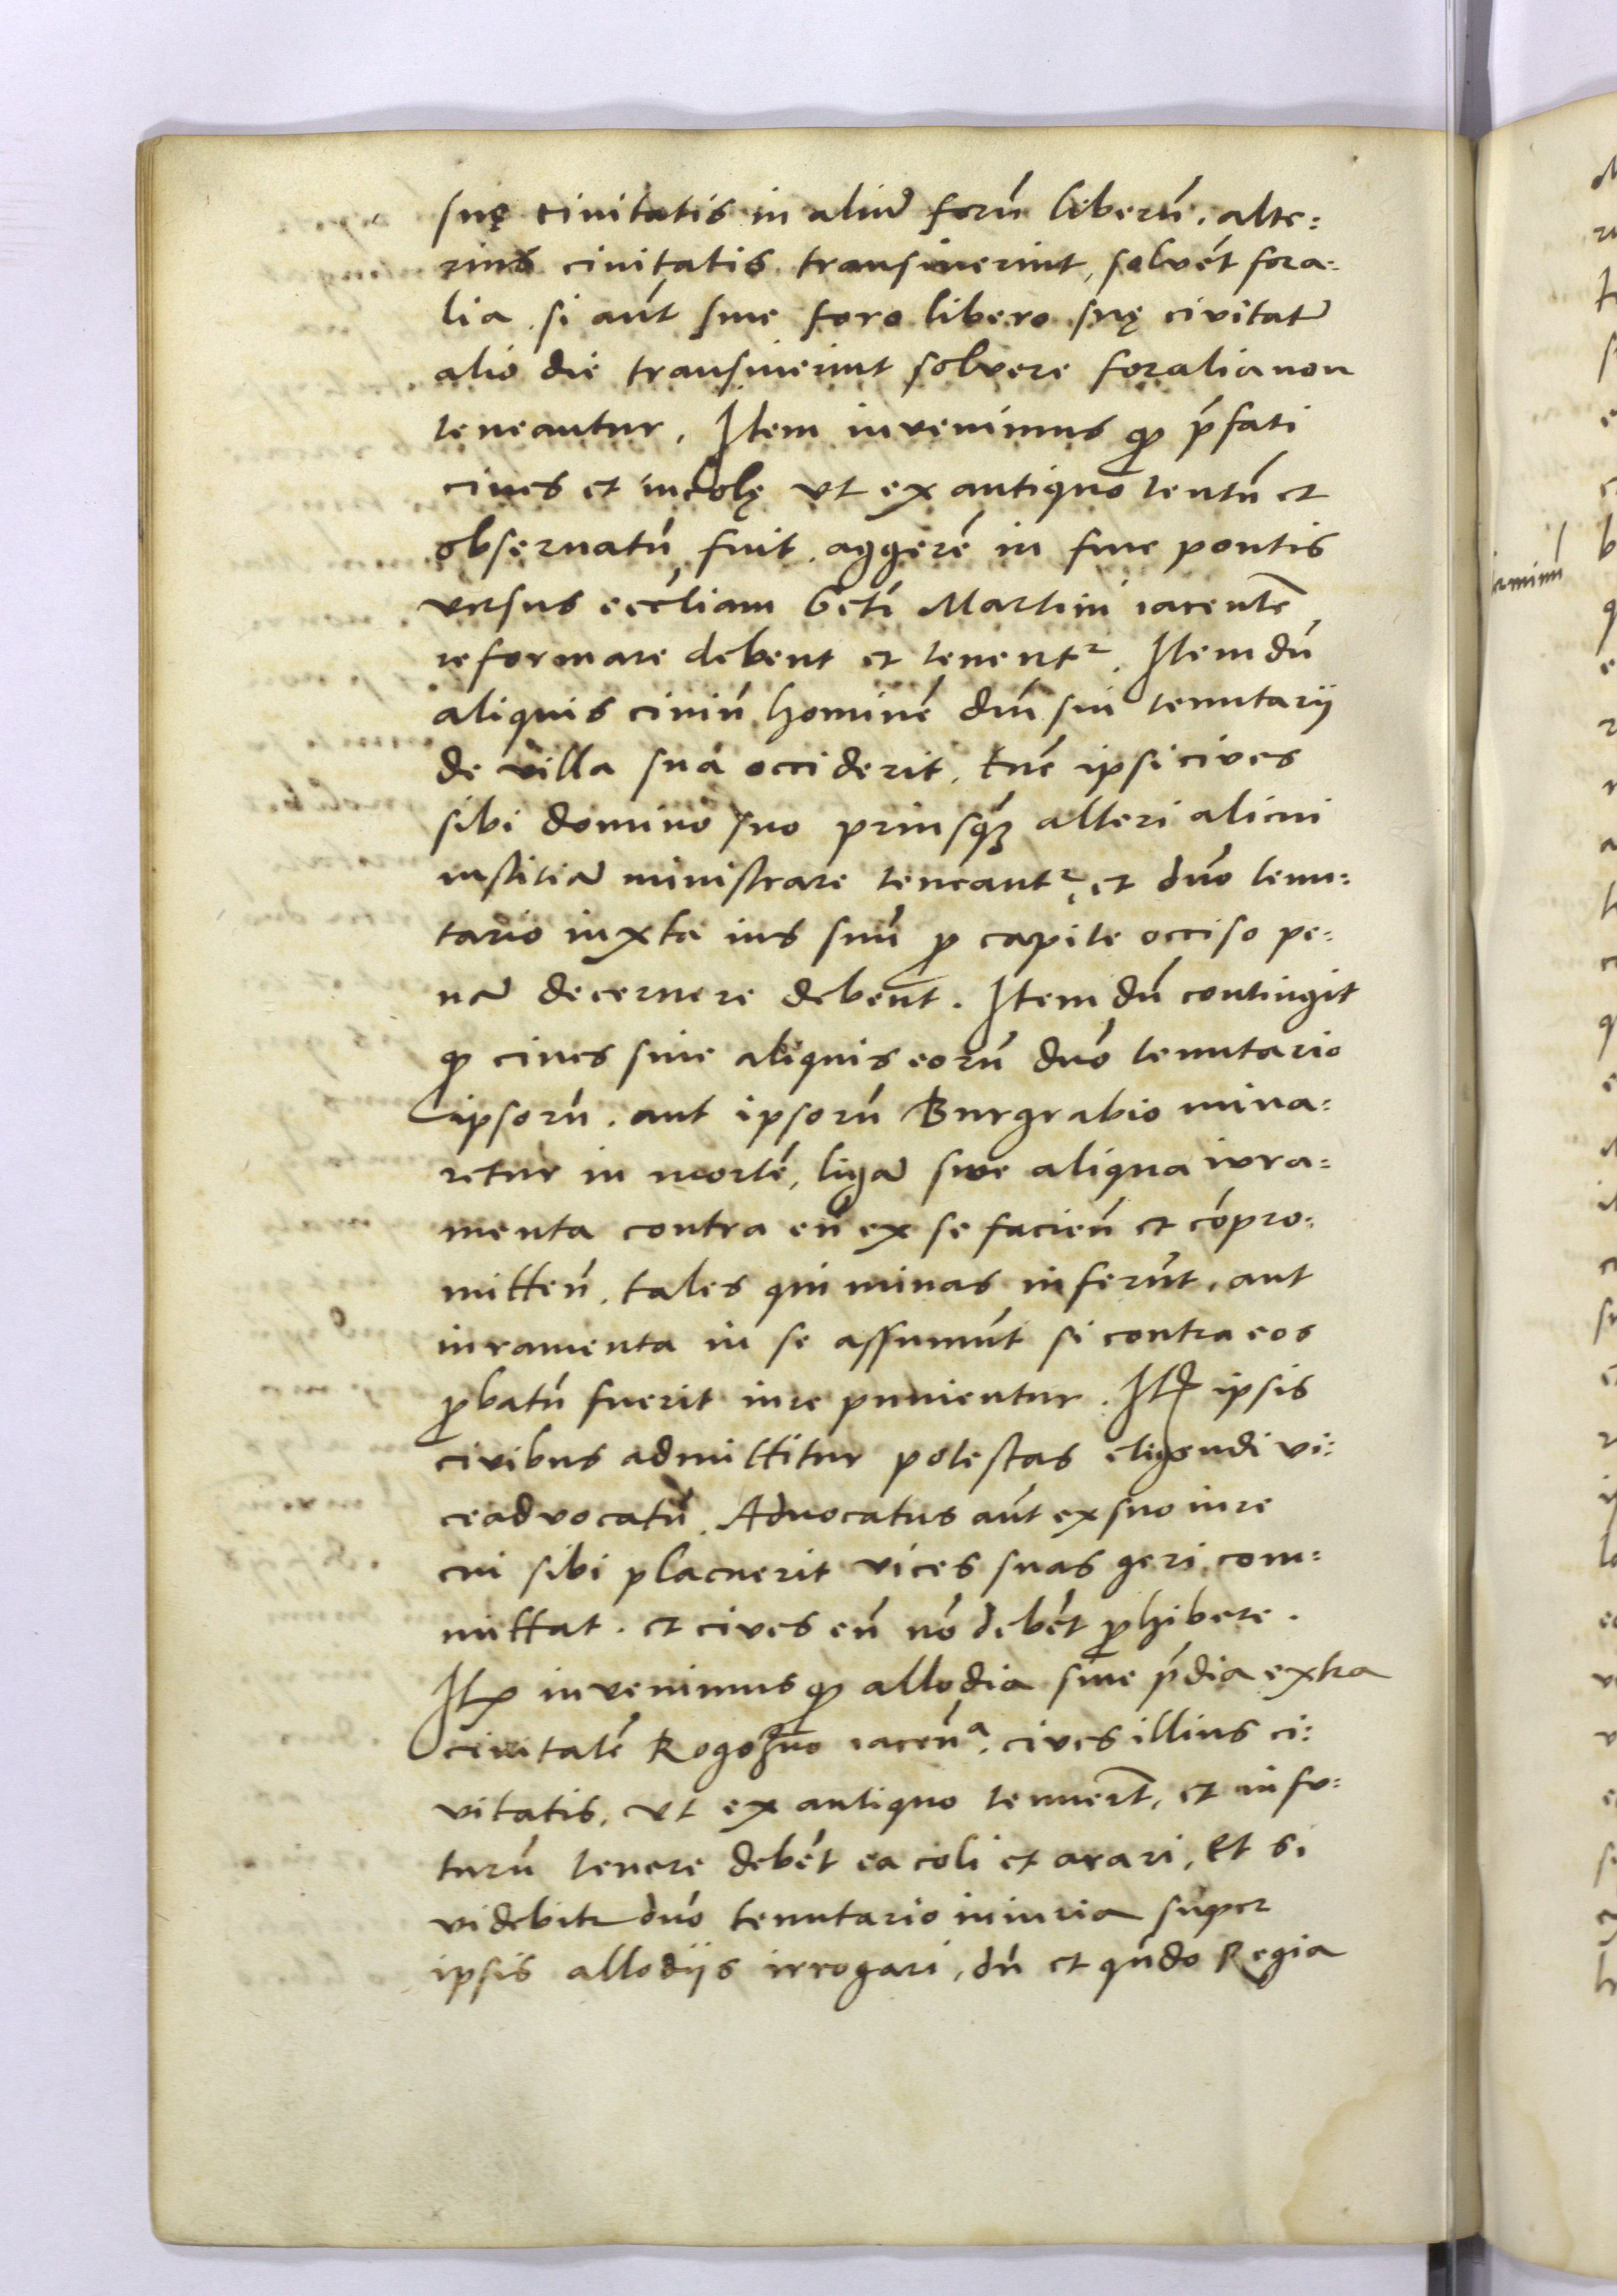 suę ciuitatis in aliud forū liberū. alte:
rius ciuitatis transiuerint, solvēt fora:
lia. si aūt sine foro libero suę civitatū
alio die transiuerint solvere foralia non
teneantur. Item invenimus qͦ p̄fati
cives et incolę vt ex antiquo tentū et
obseruatū fuit. aggerē in fine pontis
versus eccliam bēti Martini iacentē
reformare debent et tenentr. Item dū
aliquis civiū hominē dni sui tenutarij
de villa sua occiderit. tūc ipsi cives
sibi domino suo priusqꝫ alteri alicui
iustitiā ministrare teneantr, et dno tenu:
tario iuxta ius suū ꝓ capite occiso pe:
nā decernere debent. Item dū contingit
qͦ cives siue aliquis eorū dno tenutario
ipsorū. aut ipsorū Burgrabio mina:
retur in mortē, ligā sive aliqua iura:
menta contra eū ex se facien̄ et cōpro:
mitten̄. tales qui minas inferūt. aut
iuramenta in se assumūt si contra eos
ꝓbatū fuerit iure punientur. Itē ipsis
civibus admittitur potestas eligendi vi:
ceadvocatū. Advocatus aūt ex suo iure
cui sibi placuerit vices suas geri com:
mittat. et cives eū nō debēt ꝓhibere.
Itē invenimus qͦ allodia siue p̄dia extra
civitatē Rogozno iacenᵃ. cives illius ci:
vitatis, vt ex antiquo tenuerūt, et in fu:
turū tenere debēt ea coli et arari, Et si
videbitr dno tenutario iniuria super
ipsis allodijs irrogari, dū et qn̄do Regia